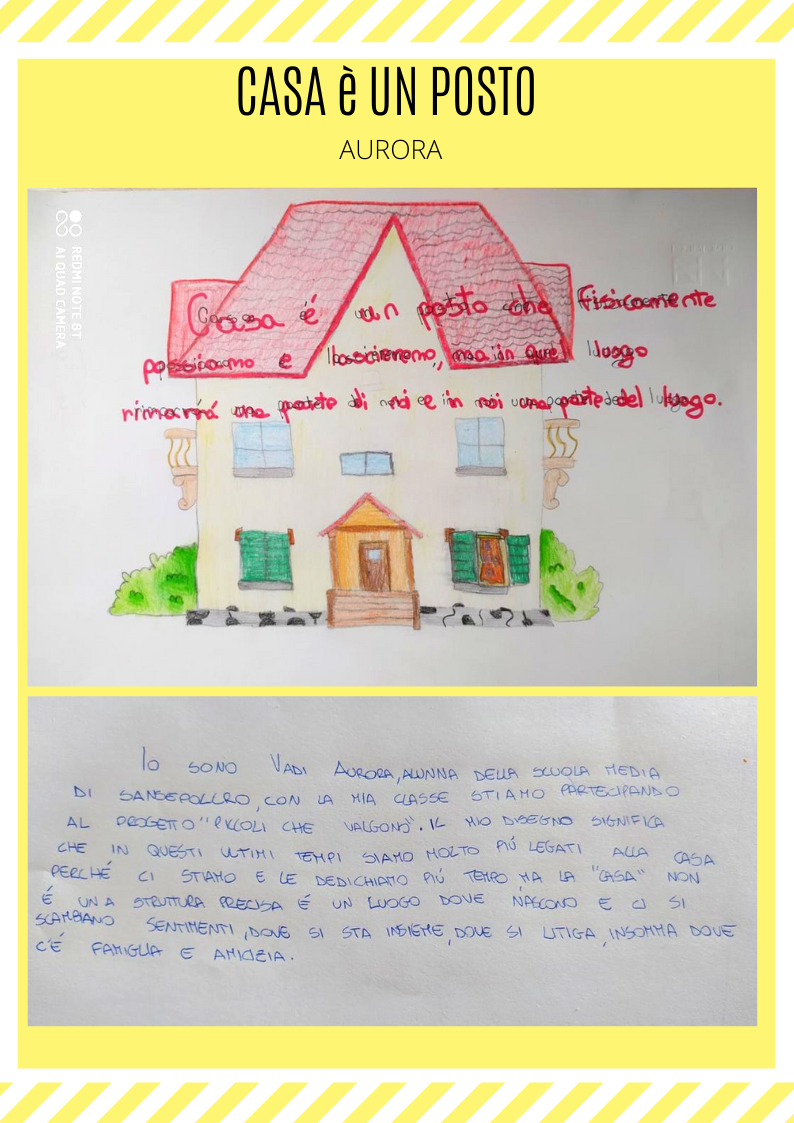 CASA è UN POSTO
AURORA
REDMI NOTE 8T
AI QUAD CAMERA
Casa é un posto che fisicamente
possiamo e lasciremo, ma in quel luogo
rimarrá una parte di noi e in noi una parte del luogo.
IO SONO VADI AURORA, ALUNNA DELLA SCUOLA MEDIA
DI SANSEPOLCRO, CON LA MIA CLASSE STIAMO PARTECIPANDO
AL PROGETTO "PICCOLI CHE VALGONO". IL MIO DISEGNO SIGNIFICA
CHE IN QUESTI ULTIMI TEMPI SIAMO MOLTO PIÚ LEGATI ALLA CASA
PERCHÉ CI STIAMO E LE DEDICHIAMO PIÚ TEMPO MA LA "CASA" NON
É UNA STRUTTURA PRECISA É UN LUOGO DOVE NASCONO E CI SI
SCAMBIANO SENTIMENTI, DOVE SI STA INSIEME, DOVE SI LITIGA, INSOMMA DOVE
C'É FAMIGLIA E AMICIZIA.